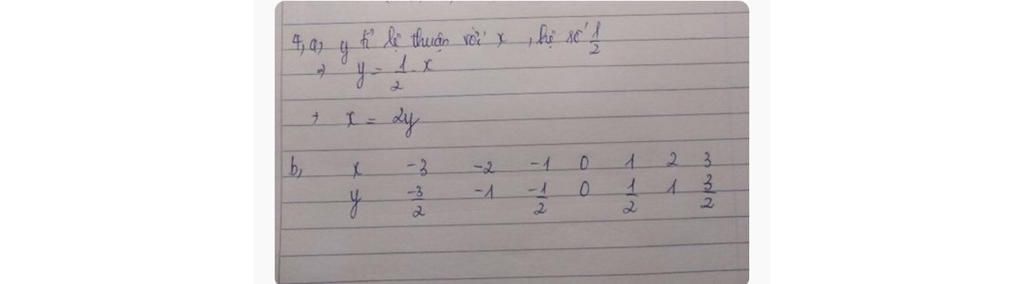 4, a, y tỉ lệ thuận với x, hệ số 1/2
⇒ y = 1/2 . x
⇒ x = 2y
b, x -3 -2 -1 0 1 2 3
y -3/2 -1 -1/2 0 1/2 1 3/2